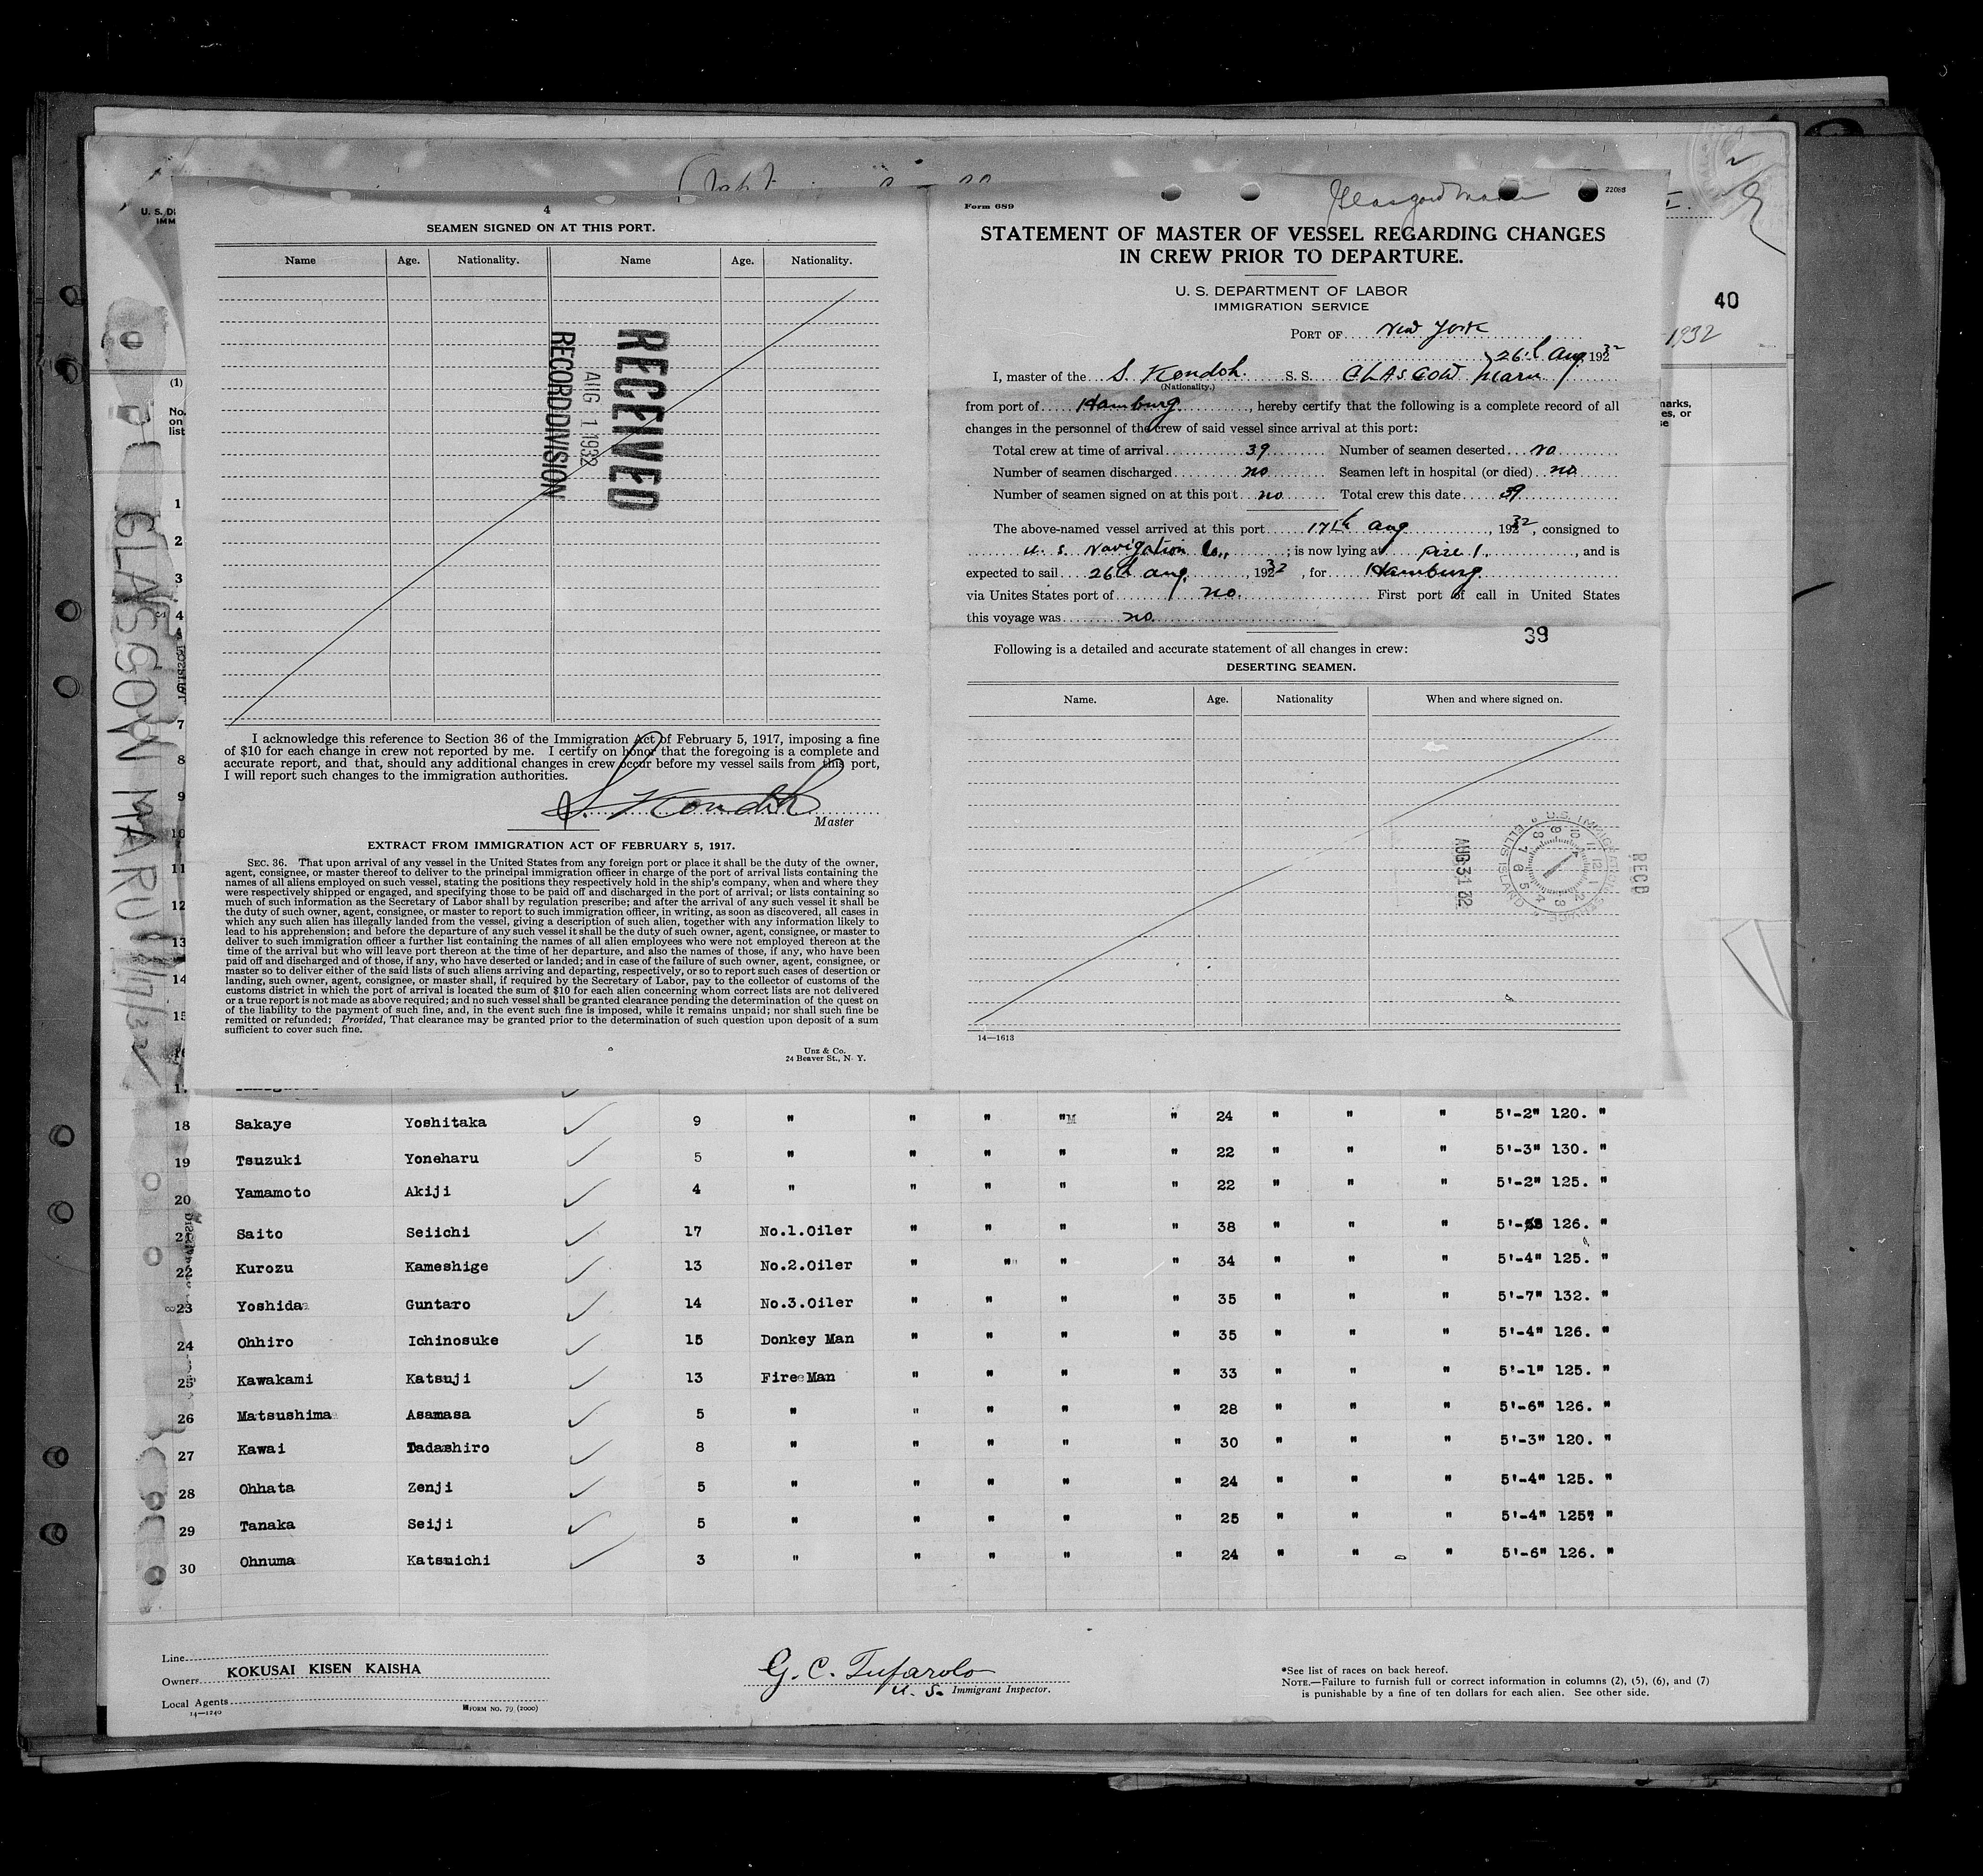 4
SEAMEN SIGNED ON AT THIS PORT.
Name Age. Nationality. Name Age. Nationality.
RECEIVED
AUG 1 1932
RECORD DIVISION
I acknowledge this reference to Section 36 of the Immigration Act of February 5, 1917, imposing a fine
of $10 for each change in crew not reported by me. I certify on honor that the foregoing is a complete and
accurate report, and that, should any additional changes in crew occur before my vessel sails from this port,
I will report such changes to the immigration authorities.
S. Kondoh
Master
EXTRACT FROM IMMIGRATION ACT OF FEBRUARY 5, 1917.
SEC. 36. That upon arrival of any vessel in the United States from any foreign port or place it shall be the duty of the owner,
agent, consignee, or master thereof to deliver to the principal immigration officer in charge of the port of arrival lists containing the
names of all aliens employed on such vessel, stating the positions they respectively hold in the ship's company, when and where they
were respectively shipped or engaged, and specifying those to be paid off and discharged in the port of arrival; or lists containing so
much of such information as the Secretary of Labor shall by regulation prescribe; and after the arrival of any such vessel it shall be
the duty of such owner, agent, consignee, or master to report to such immigration officer, in writing, as soon as discovered, all cases in
which any such alien has illegally landed from the vessel, giving a description of such alien, together with any information likely to
lead to his apprehension; and before the departure of any such vessel it shall be the duty of such owner, agent, consignee, or master to
deliver to such immigration officer a further list containing the names of all alien employees who were not employed thereon at the
time of the arrival but who will leave port thereon at the time of her departure, and also the names of those, if any, who have been
paid off and discharged and of those, if any, who have deserted or landed; and in case of the failure of such owner, agent, consignee, or
master so to deliver either of the said lists of such aliens arriving and departing, respectively, or so to report such cases of desertion or
landing, such owner, agent, consignee, or master shall, if required by the Secretary of Labor, pay to the collector of customs of the
customs district in which the port of arrival is located the sum of $10 for each alien concerning whom correct lists are not delivered
or a true report is not made as above required; and no such vessel shall be granted clearance pending the determination of the quest on
of the liability to the payment of such fine, and, in the event such fine is imposed, while it remains unpaid; nor shall such fine be
remitted or refunded; Provided, That clearance may be granted prior to the determination of such question upon deposit of a sum
sufficient to cover such fine.
Unz & Co.
24 Beaver St., N. Y.
Form 689
Glasgow Maru
22088
STATEMENT OF MASTER OF VESSEL REGARDING CHANGES
IN CREW PRIOR TO DEPARTURE.
U. S. DEPARTMENT OF LABOR
IMMIGRATION SERVICE
PORT OF New York
26th Aug. 1932
I, master of the S. Kondoh. S. S. GLASGOW Maru
(Nationality.)
from port of Hamburg, hereby certify that the following is a complete record of all
changes in the personnel of the crew of said vessel since arrival at this port:
Total crew at time of arrival 39 Number of seamen deserted no
Number of seamen discharged no Seamen left in hospital (or died) no
Number of seamen signed on at this port no Total crew this date 39
The above-named vessel arrived at this port 17th Aug, 1932, consigned to
U. S. Navigation Co.,; is now lying at pier 1, and is
expected to sail 26th Aug., 1932, for Hamburg.
via Unites States port of no. First port of call in United States
this voyage was no.
39
Following is a detailed and accurate statement of all changes in crew:
DESERTING SEAMEN.
Name. Age. Nationality When and where signed on.
AUG 31 32
U.S. IMMIGRATION SERVICE ELLIS ISLAND
REC'D
14—1613
40
-1932
GLASGOW MARU 8/17/32
U. S. D
IMM
(1)
No.
on
list
marks,
es, or
se
1
2
3
4
7
8
9
10
11
12
13
14
15
18 Sakaye Yoshitaka 9 " " " "M " 24 " " " 5'-2" 120. "
19 Tsuzuki Yoneharu 5 " " " " " 22 " " " 5'-3" 130. "
20 Yamamoto Akiji 4 " " " " " 22 " " " 5'-2" 125. "
21 Saito Seiichi 17 No.1.Oiler " " " " 38 " " " 5'- 126. "
22 Kurozu Kameshige 13 No.2.Oiler " " " " 34 " " " 5'-4" 125. "
23 Yoshida Guntaro 14 No.3.Oiler " " " " 35 " " " 5'-7" 132. "
24 Ohhiro Ichinosuke 15 Donkey Man " " " " 35 " " " 5'-4" 126. "
25 Kawakami Katsuji 13 Fire Man " " " " 33 " " " 5'-1" 125. "
26 Matsushima Asamasa 5 " " " " " 28 " " " 5'-6" 126. "
27 Kawai Tadashiro 8 " " " " " 30 " " " 5'-3" 120. "
28 Ohhata Zenji 5 " " " " " 24 " " " 5'-4" 125. "
29 Tanaka Seiji 5 " " " " " 25 " " " 5'-4" 125" "
30 Ohnuma Katsuichi 3 " " " " " 24 " " " 5'-6" 126. "
Line
Owners KOKUSAI KISEN KAISHA
Local Agents
14—1240
FORM NO. 79 (2000)
G. C. Tufarolo
U. S. Immigrant Inspector.
*See list of races on back hereof.
NOTE.—Failure to furnish full or correct information in columns (2), (5), (6), and (7)
is punishable by a fine of ten dollars for each alien. See other side.